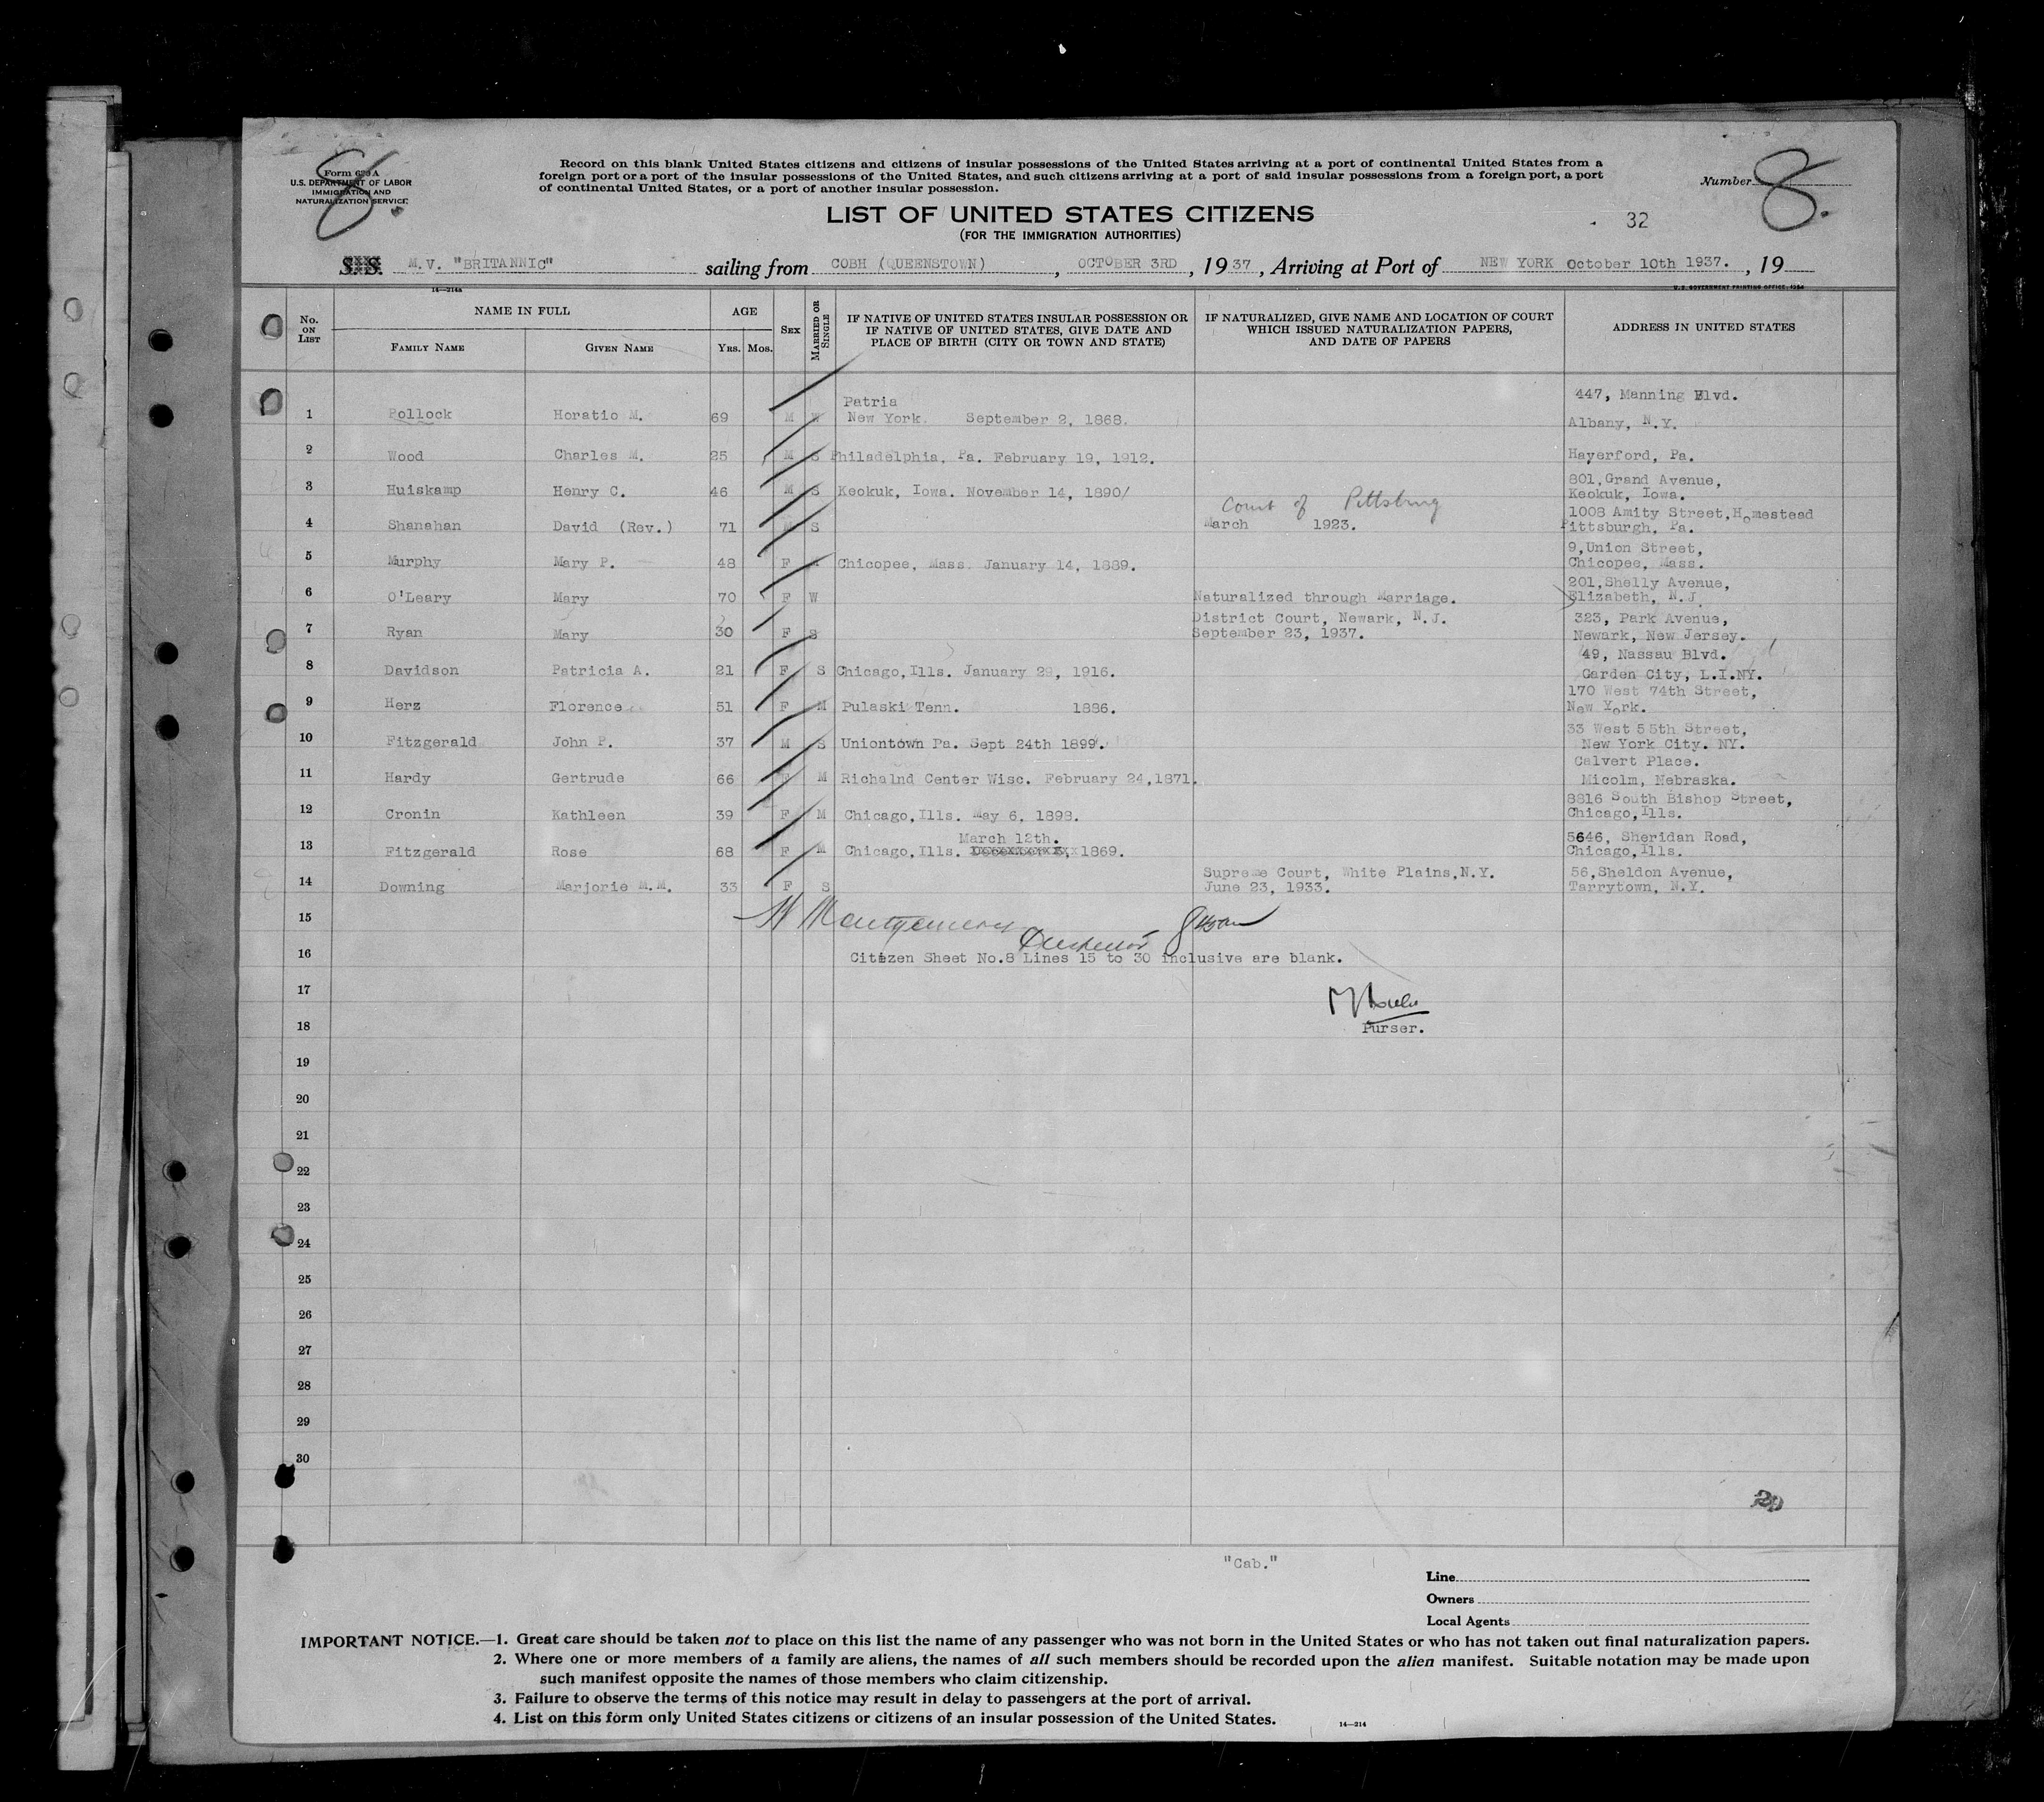 8.
Form 630 A
U.S. DEPARTMENT OF LABOR
IMMIGRATION AND
NATURALIZATION SERVICE
Record on this blank United States citizens and citizens of insular possessions of the United States arriving at a port of continental United States from a
foreign port or a port of the insular possessions of the United States, and such citizens arriving at a port of said insular possessions from a foreign port, a port
of continental United States, or a port of another insular possession.
Number 8.
LIST OF UNITED STATES CITIZENS
(FOR THE IMMIGRATION AUTHORITIES)
32
S.S. M.V. "BRITANNIC" sailing from COBH (QUEENSTOWN), OCTOBER 3RD, 1937, Arriving at Port of NEW YORK October 10th 1937., 19
14—214a
U.S. GOVERNMENT PRINTING OFFICE: 1934
No. ON LIST
NAME IN FULL
FAMILY NAME GIVEN NAME
AGE
YRS. MOS.
SEX
MARRIED OR SINGLE
IF NATIVE OF UNITED STATES INSULAR POSSESSION OR
IF NATIVE OF UNITED STATES, GIVE DATE AND
PLACE OF BIRTH (CITY OR TOWN AND STATE)
IF NATURALIZED, GIVE NAME AND LOCATION OF COURT
WHICH ISSUED NATURALIZATION PAPERS,
AND DATE OF PAPERS
ADDRESS IN UNITED STATES
Patria 447, Manning Blvd.
1 Pollock Horatio M. 69 M W New York. September 2, 1868. Albany, N.Y.
2 Wood Charles M. 25 M S Philadelphia, Pa. February 19, 1912. Haverford, Pa.
801, Grand Avenue,
3 Huiskamp Henry C. 46 M S Keokuk, Iowa. November 14, 1890/ Keokuk, Iowa.
Court of Pittsburg 1008 Amity Street, Homestead
4 Shanahan David (Rev.) 71 M S March 1923. Pittsburgh, Pa.
9, Union Street,
5 Murphy Mary P. 48 F Chicopee, Mass. January 14, 1889. Chicopee, Mass.
201, Shelly Avenue,
6 O'Leary Mary 70 F W Naturalized through Marriage. Elizabeth, N.J.
District Court, Newark, N.J. 323, Park Avenue,
7 Ryan Mary 30 F S September 23, 1937. Newark, New Jersey.
49, Nassau Blvd.
8 Davidson Patricia A. 21 F S Chicago, Ills. January 29, 1916. Garden City, L.I.NY.
170 West 74th Street,
9 Herz Florence 51 F M Pulaski Tenn. 1886. New York.
33 West 55th Street,
10 Fitzgerald John P. 37 M S Uniontown Pa. Sept 24th 1899. New York City. NY.
Calvert Place.
11 Hardy Gertrude 66 F M Richalnd Center Wisc. February 24, 1871. Micolm, Nebraska.
8816 South Bishop Street,
12 Cronin Kathleen 39 F M Chicago, Ills. May 6, 1898. Chicago, Ills.
March 12th. 5646, Sheridan Road,
13 Fitzgerald Rose 68 F M Chicago, Ills. 1869. Chicago, Ills.
Supreme Court, White Plains, N.Y. 56, Sheldon Avenue,
14 Downing Marjorie M.M. 33 F S June 23, 1933. Tarrytown, N.Y.
15 Montgomery
Inspector
16 Citizen Sheet No.8 Lines 15 to 30 inclusive are blank.
17
18 Purser.
19
20
21
22
23
24
25
26
27
28
29
30
"Cab."
Line
Owners
Local Agents
IMPORTANT NOTICE.—1. Great care should be taken not to place on this list the name of any passenger who was not born in the United States or who has not taken out final naturalization papers.
2. Where one or more members of a family are aliens, the names of all such members should be recorded upon the alien manifest. Suitable notation may be made upon
such manifest opposite the names of those members who claim citizenship.
3. Failure to observe the terms of this notice may result in delay to passengers at the port of arrival.
4. List on this form only United States citizens or citizens of an insular possession of the United States.
14—214